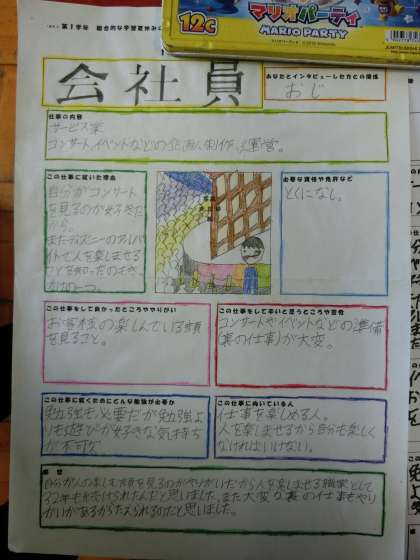 第1学年 総合的な学習夏休み
12c
マリオパーティ
MARIO PARTY
会社員
あなたとインタビューした方との関係
おじ
仕事の内容
サービス業
コンサート、イベントなどの企画、制作、運営。
この仕事に就いた理由
自分がコンサート
を見るのが好きだ
から。
またディズニーのアルバ
イトで人を楽しませる
必要な資格や免許など
とくになし。
この仕事をして良かったところややりがい
お客様の楽しんでいる顔
を見ること。
この仕事をして辛いと思うところや苦労
コンサートやイベントなどの準備
(裏の仕事)が大変。
この仕事に就くためにどんな勉強が必要か
勉強も必要だが勉強よ
りも遊びが好きな気持ち
が不可欠
この仕事に向いている人
仕事を楽しめる人。
人を楽しませるから自分も楽しく
なければいけない。
感想
自分が人の楽しむ顔を見るのがやりがいだから人を楽しませる職業として
32年も続けられたんだと思いました。また大変な裏の仕事もやり
がいがあるからたえられるのだと思いました。